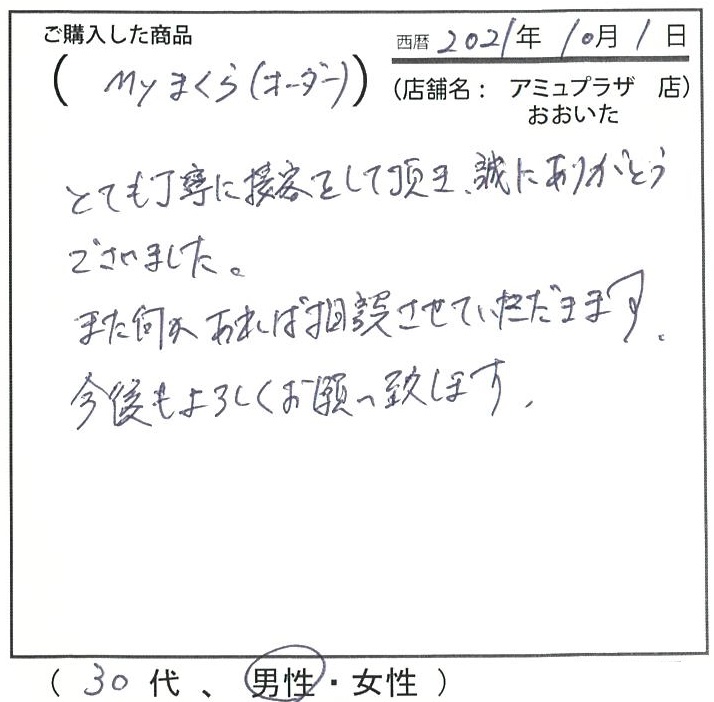 ご購入した商品
西暦 2021年 10月 1日
( Myまくら(オーダー) )
(店舗名： アミュプラザ 店)
おおいた
とても丁寧に接客をして頂き、誠にありがとう
ございました。
また何かあれば相談させていただきます。
今後もよろしくお願い致します。
( 30 代 、 男性・女性 )